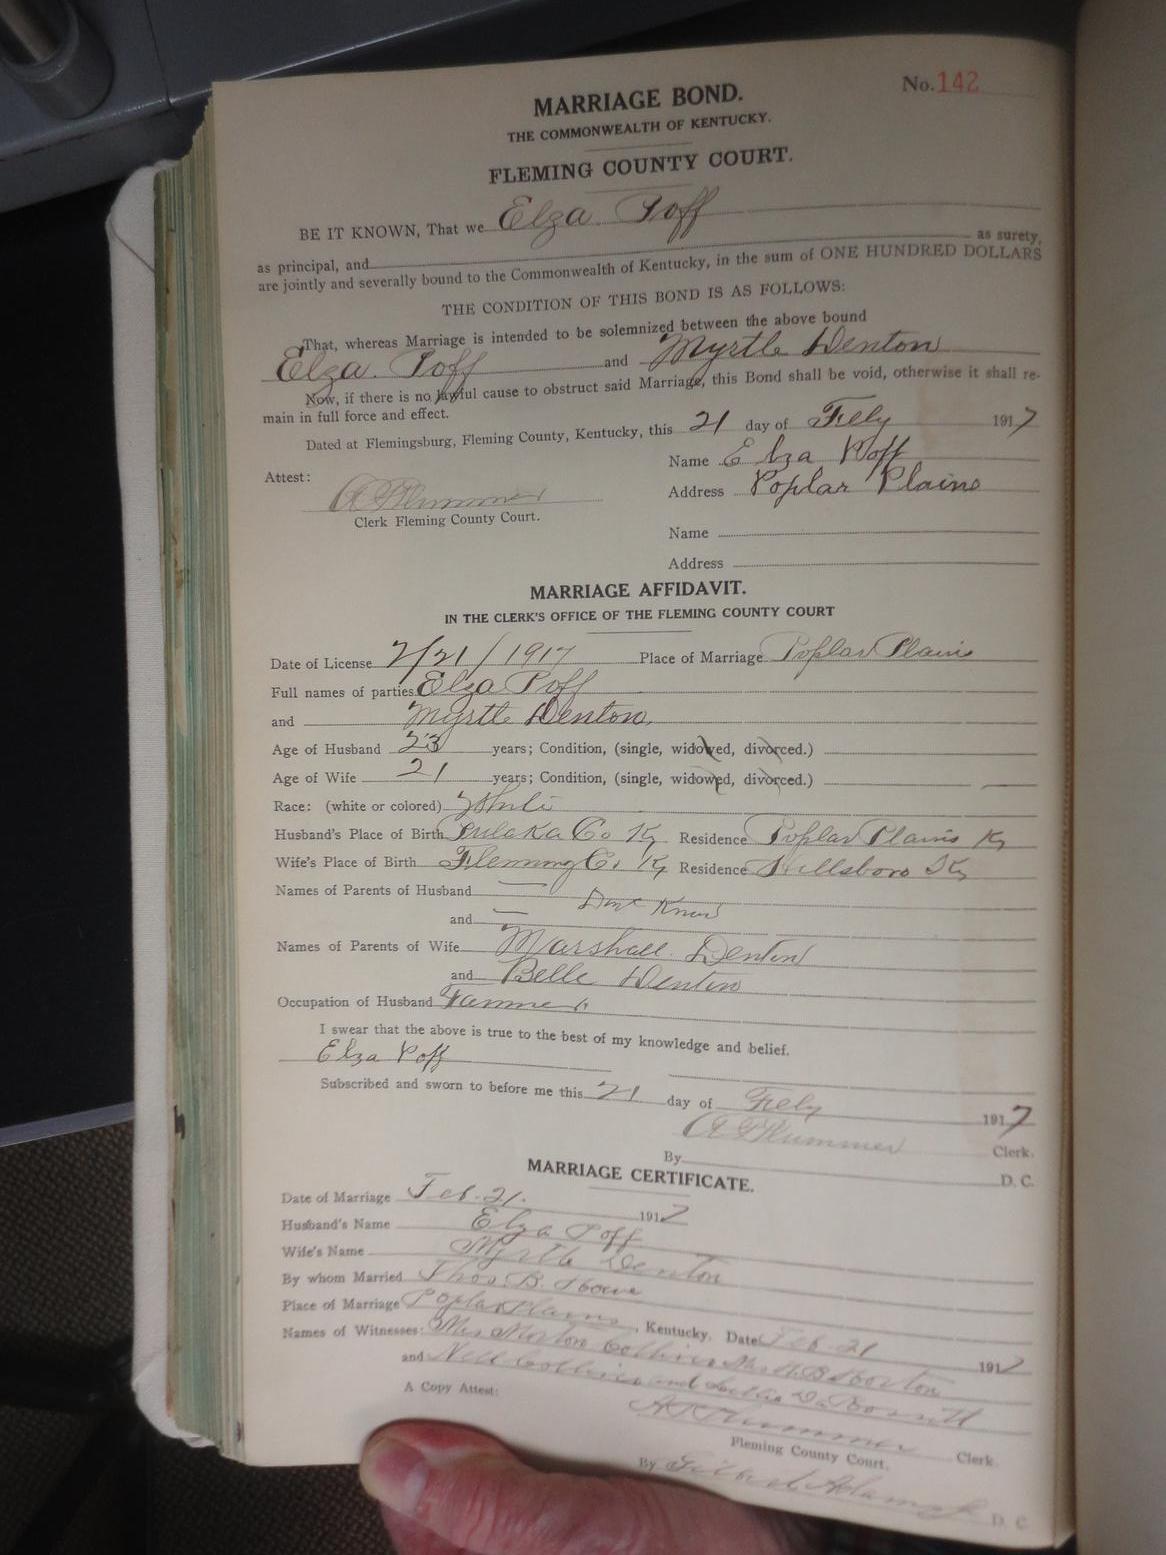 No. 142
MARRIAGE BOND.
THE COMMONWEALTH OF KENTUCKY.
FLEMING COUNTY COURT.
BE IT KNOWN, That we Elza Poff
as principal, and as surety,
are jointly and severally bound to the Commonwealth of Kentucky, in the sum of ONE HUNDRED DOLLARS
THE CONDITION OF THIS BOND IS AS FOLLOWS:
That, whereas Marriage is intended to be solemnized between the above bound
Elza Poff and Myrtle Denton
Now, if there is no lawful cause to obstruct said Marriage, this Bond shall be void, otherwise it shall re-
main in full force and effect.
Dated at Flemingsburg, Fleming County, Kentucky, this 21 day of Feby 1917
Name Elza Poff
Attest:
Address Poplar Plains
Clerk Fleming County Court.
Name
Address
MARRIAGE AFFIDAVIT.
IN THE CLERK'S OFFICE OF THE FLEMING COUNTY COURT
Date of License 2/21/1917 Place of Marriage Poplar Plains
Full names of parties Elza Poff
and Myrtle Denton
Age of Husband 23 years; Condition, (single, widowed, divorced.)
Age of Wife 21 years; Condition, (single, widowed, divorced.)
Race: (white or colored) White
Husband's Place of Birth Co Ky Residence Poplar Plains Ky
Wife's Place of Birth Fleming Co. Ky Residence Hillsboro Ky
Names of Parents of Husband — Dont Know
and —
Names of Parents of Wife Marshall Denton
and Belle Denton
Occupation of Husband Farmer
I swear that the above is true to the best of my knowledge and belief.
Elza Poff
Subscribed and sworn to before me this 21 day of Feby 1917
Clerk.
By D. C.
MARRIAGE CERTIFICATE.
Date of Marriage Feb. 21. 1917
Husband's Name Elza Poff
Wife's Name Myrtle Denton
By whom Married Thos. B.
Place of Marriage Poplar Plains, Kentucky. Date Feb. 21 1917
Names of Witnesses: Mrs Morton Collins
and Nell Collins and
A Copy Attest:
Clerk
Fleming County Court.
By D. C.